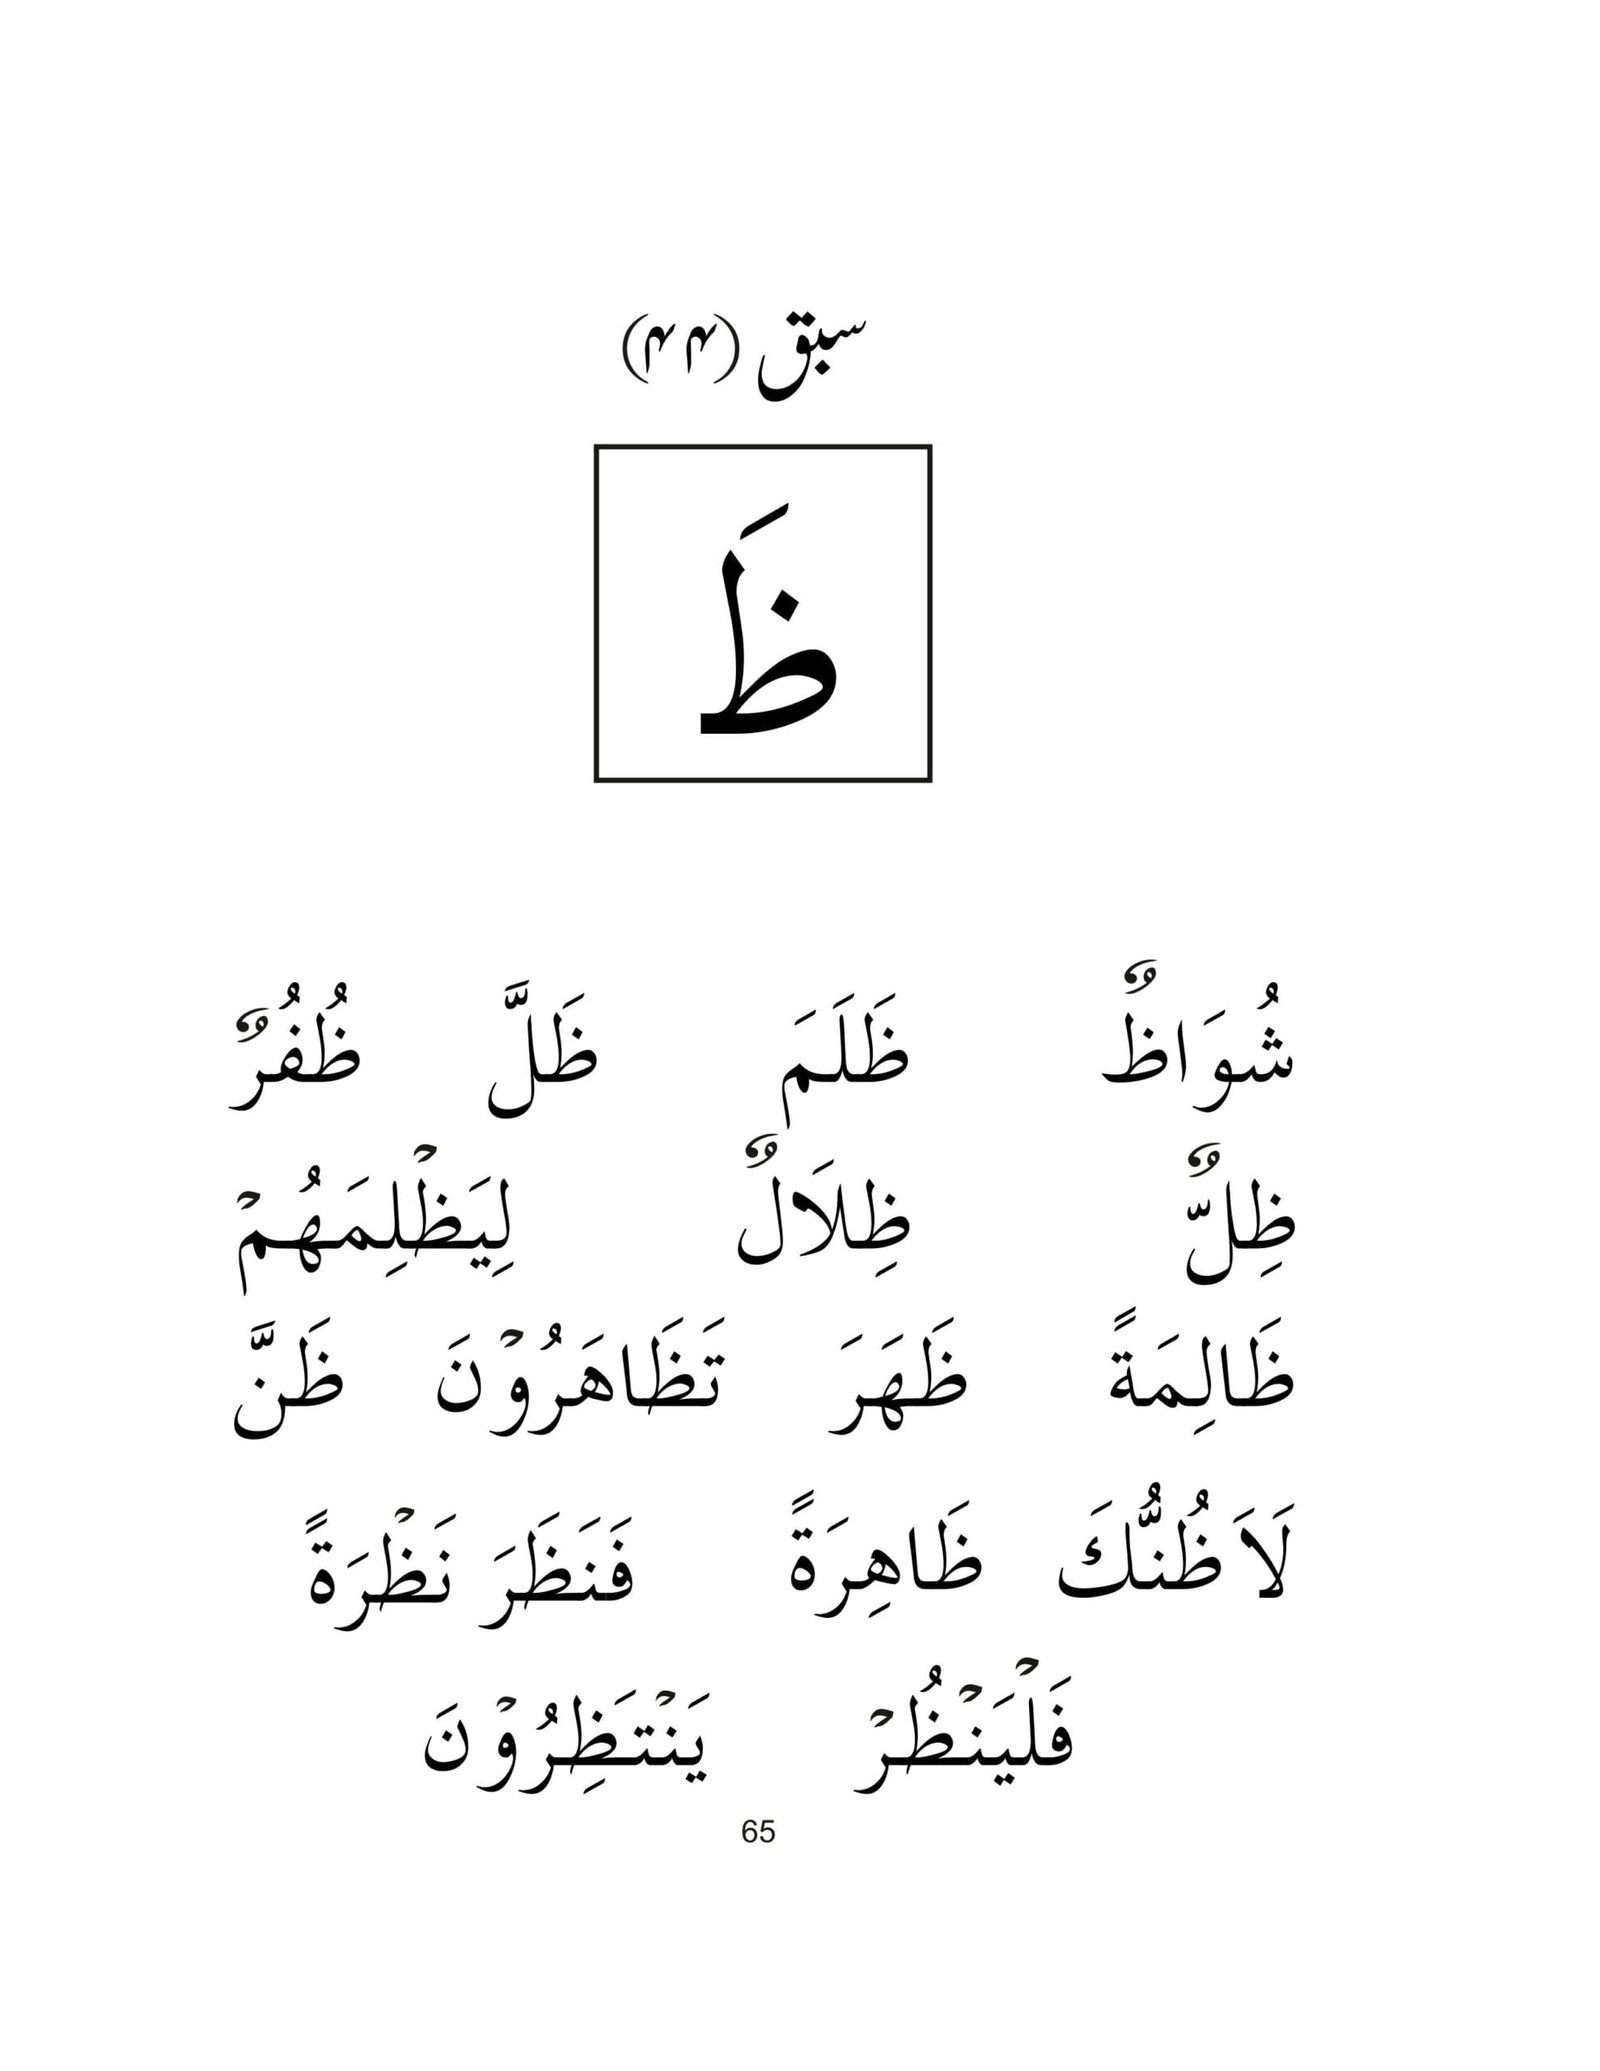 سبق (۴۴)
ظَ
شُوَاظٌ ظَلَمَ ظَلَّ ظُفُرٌ
ظِلٌّ ظِلَالٌ لِيَظْلِمَهُمْ
ظَالِمَةً ظَهَرَ تَظَاهَرُوْنَ ظَنَّ
لَاَظُنُّكَ ظَاهِرَةً فَنَظَرَ نَظْرَةً
فَلْيَنْظُرْ يَنْتَظِرُوْنَ
65